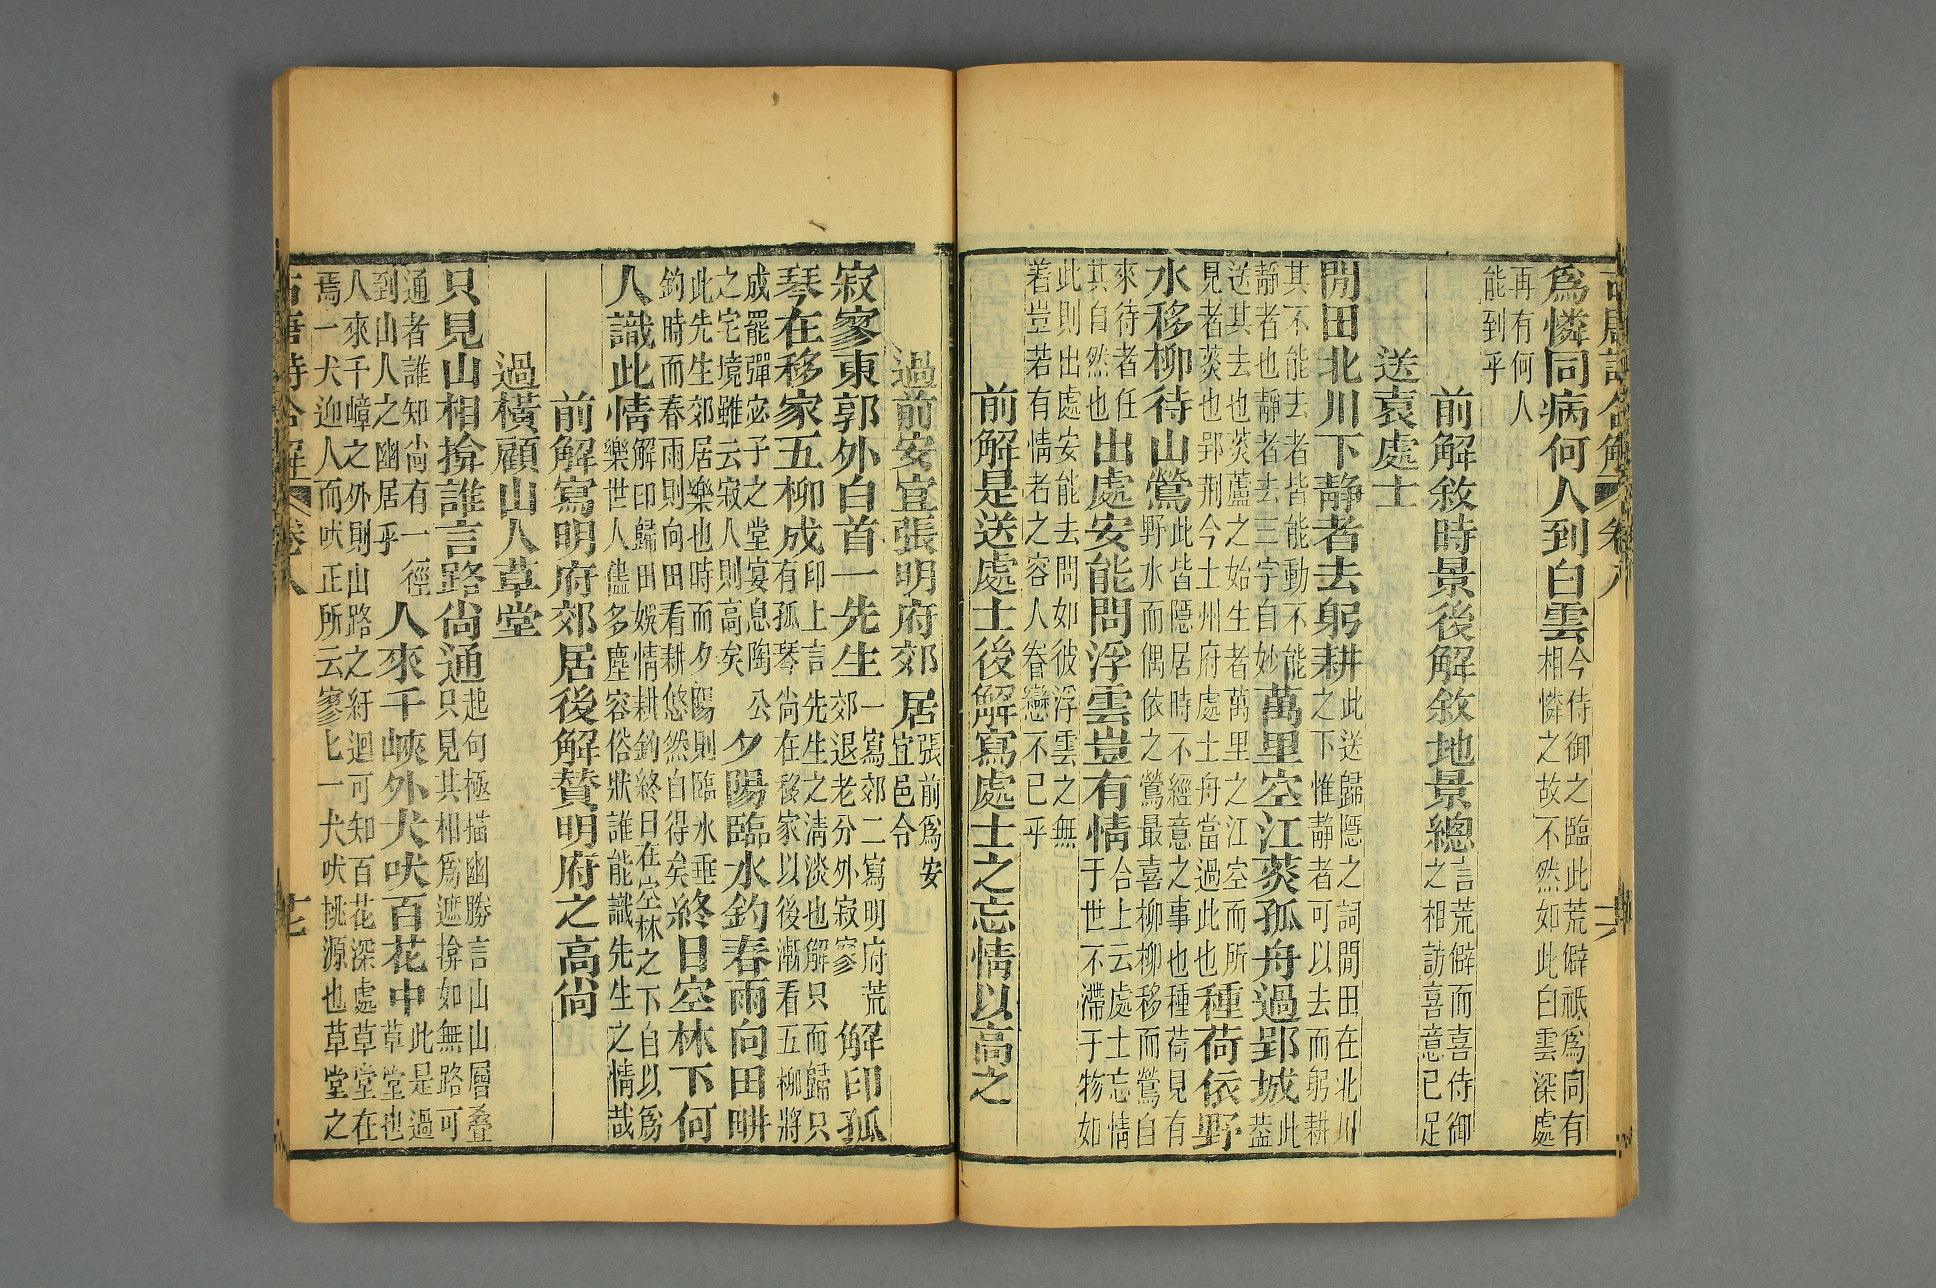 古唐詩合解 卷八 十六
爲憐同病何人到白雲今侍御之臨此荒僻祇爲同有
相憐之故不然如此白雲深處
再有何人
能到乎
前解敘時景後解敘地景總言荒僻而喜侍御
之相訪喜意已足
送袁處士
閒田北川下靜者去躬耕此送歸隱之詞閒田在北川
之下惟靜者可以去而躬耕
其不能去者皆能動不能
靜者也靜者去三字自妙
萬里空江菼孤舟過郢城此
葢
送其去也菼蘆之始生者萬里之江空而所
見者菼也郢荆今士州府處士舟當過此也
種荷依野
水移柳待山鶯此皆隱居時不經意之事也種荷見有
野水而偶依之鶯最喜柳柳移而鶯自
來待者任
其自然也
出處安能問浮雲豈有情合上云處士忘情
于世不滯于物如
此則出處安能去問如彼浮雲之無
着豈若有情者之容人眷戀不已乎
前解是送處士後解寫處士之忘情以高之
過前安宜張明府郊居張前爲安
宜邑令
寂寥東郭外白首一先生一寫郊二寫明府荒
郊退老分外寂寥
解印孤
琴在移家五柳成印上言先生之清淡也解只而歸只
有孤琴尚在移家以後漸看五柳將
成罷彈宓子之堂宴息陶公
之宅境雖云寂人則高矣
夕陽臨水釣春雨向田畊
此先生郊居樂也時而夕陽則臨水垂
釣時而春雨則向田看耕悠然自得矣
終日空林下何
人識此情解印歸田娛情耕釣終日在空林之下自以爲
樂世人儘多塵容俗狀誰能識先生之情哉
前解寫明府郊居後解贊明府之高尚
過橫顧山人草堂
只見山相揜誰言路尚通起句極描幽勝言山山層叠
只見其相爲遮揜如無路可
通者誰知尚有一徑
到山人之幽居乎
人來千峽外犬吠百花中此是過
草堂也
人來千嶂之外則山路之紆迴可知百花深處草堂在
焉一犬迎人而吠正所云寥七一犬吠桃源也草堂之
古唐詩合解 卷八